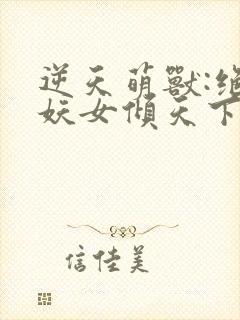 逆天萌獸:絕
妖女傾天下
信佳美